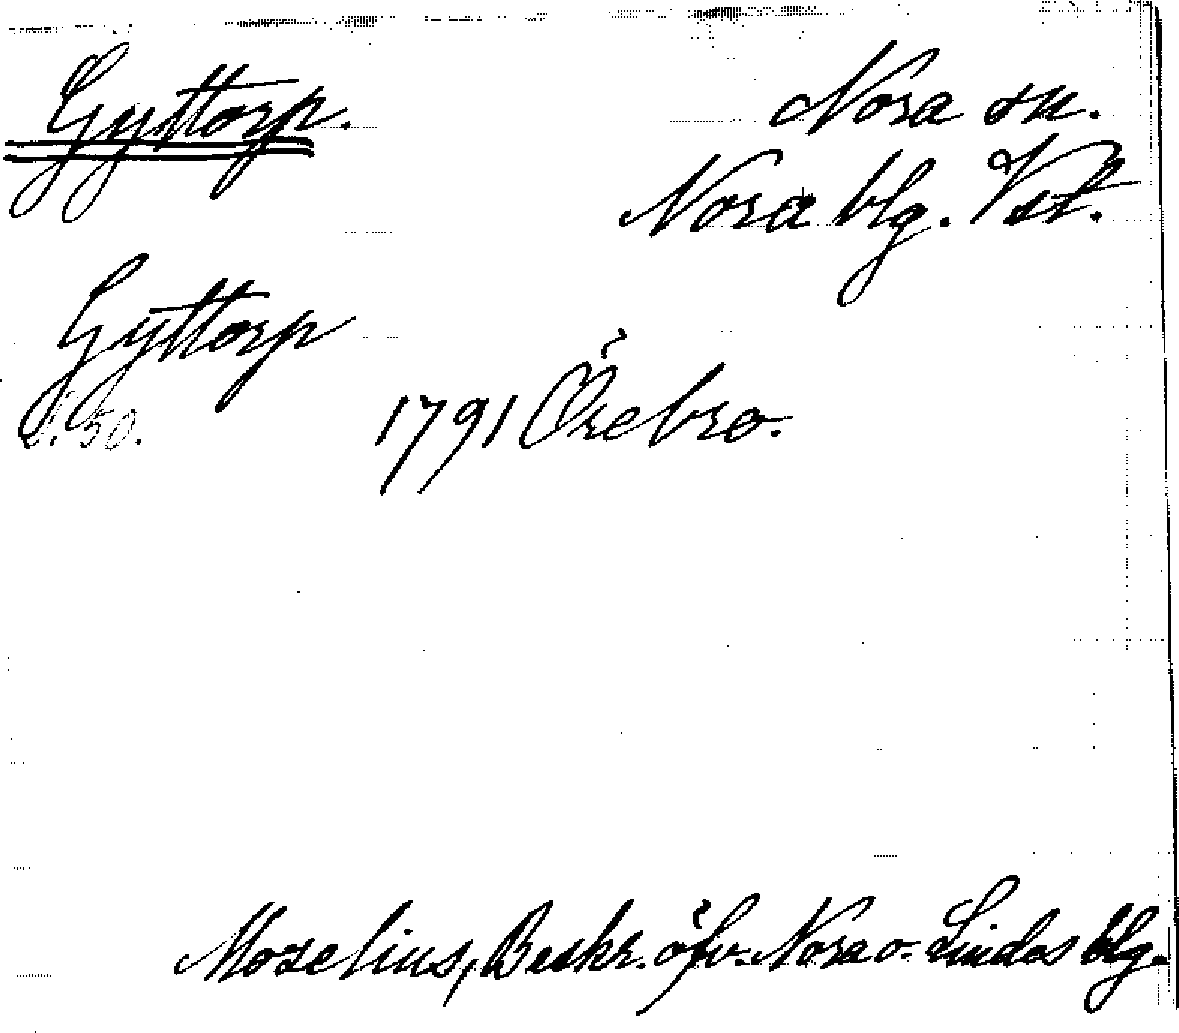 Gyttorp. Nora sn.
Nora blg. Vst.
Gyttorp
S. 50. 1791 Örebro.
Mozelius, Beskr. öfv. Nora o. Lindes blg.